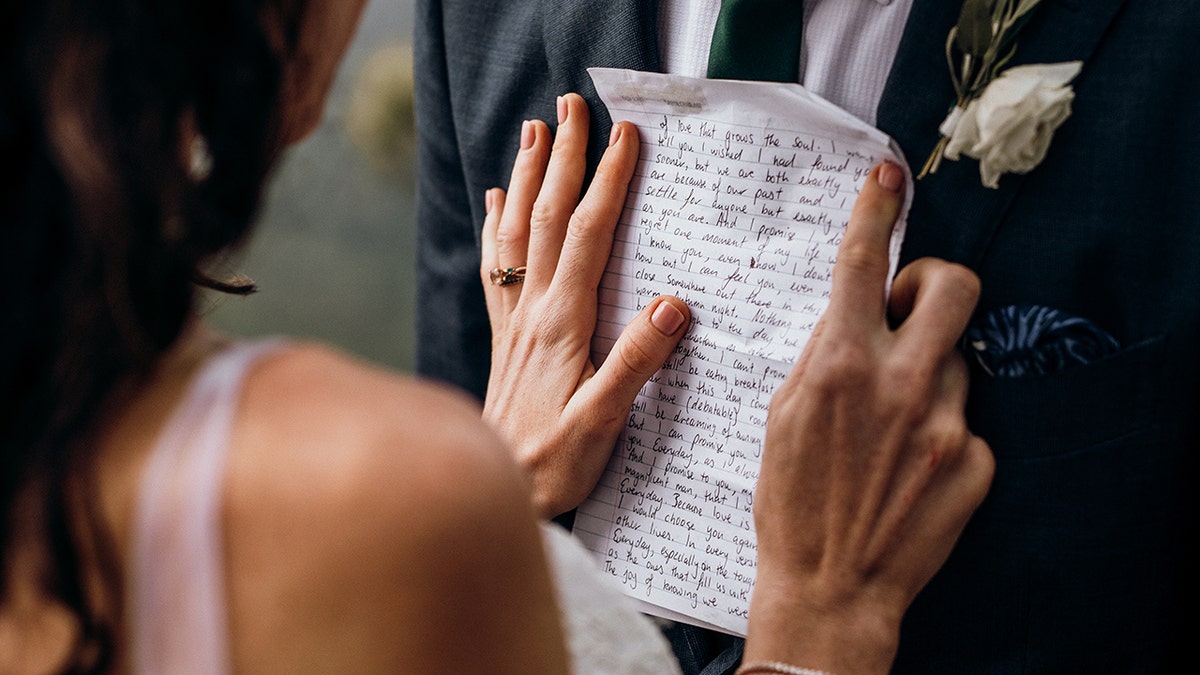 of love that grows the soul. I
tell you I wished I had found
sooner, but we are both exactly
are because of our past and I
settle for anyone but exactly
as you are. And I promise I
regret one moment of my life
I know you, even know I don't
how but I can feel you, even
close somewhere out there in this
warm Autumn night. Nothing
to the day
as
together. I can't
still be eating breakfast
when this day
have (debatable)
still be dreaming of
But I can promise you
you. Everyday, as I
And I promise to you, my
magnificent man, that
Everyday. Because love is
I would choose you again
other lives. In every
Everyday, especially on the
as the ones that fill us with
The joy of knowing we were